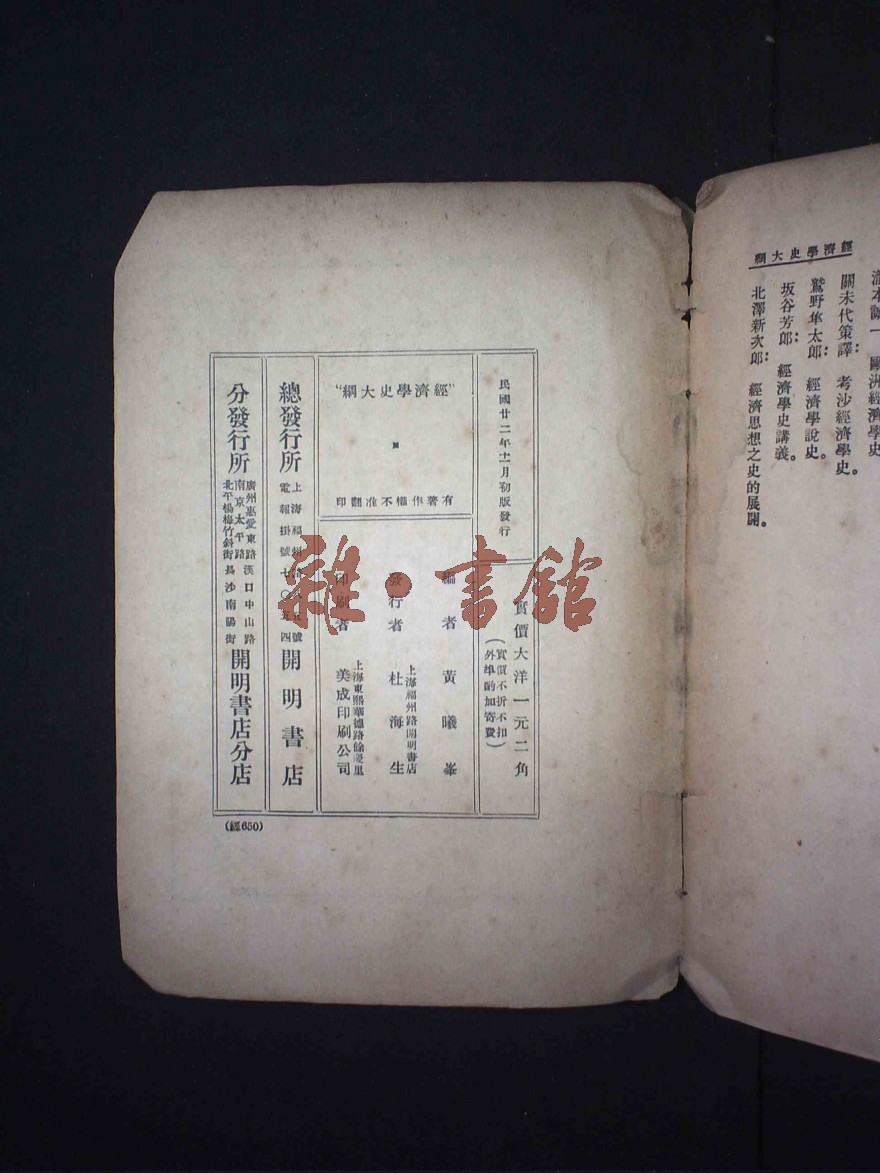 經濟學史大綱
歐洲經濟學史
關未代策譯：考沙經濟學史。
鷲野隼太郎：經濟學說史。
坂谷芳郎：經濟學史講義。
北澤新次郎：經濟思想之史的展開。
民國廿二年十一月初版發行
實價大洋一元二角
（實價不折不扣
外埠酌加寄費）
"經濟學史大綱"
有著作權不准翻印
編者 黃曦峯
發行者 上海福州路開明書店
杜海生
印刷者 上海東熙華德路餘慶里
美成印刷公司
總發行所 上海福州路
電報掛號七〇五四
開明書店
分發行所 廣州惠愛東路 漢口中山路
南京太平路
北平楊梅竹斜街 長沙南陽街
開明書店分店
(經650)
雜·書館